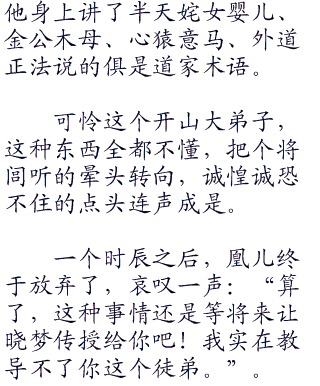 他身上讲了半天姹女婴儿、
金公木母、心猿意马、外道
正法说的俱是道家术语。
可怜这个开山大弟子，
这种东西全都不懂，把个将
闾听的晕头转向，诚惶诚恐
不住的点头连声成是。
一个时辰之后，凰儿终
于放弃了，哀叹一声：“算
了，这种事情还是等将来让
晓梦传授给你吧！我实在教
导不了你这个徒弟。”。